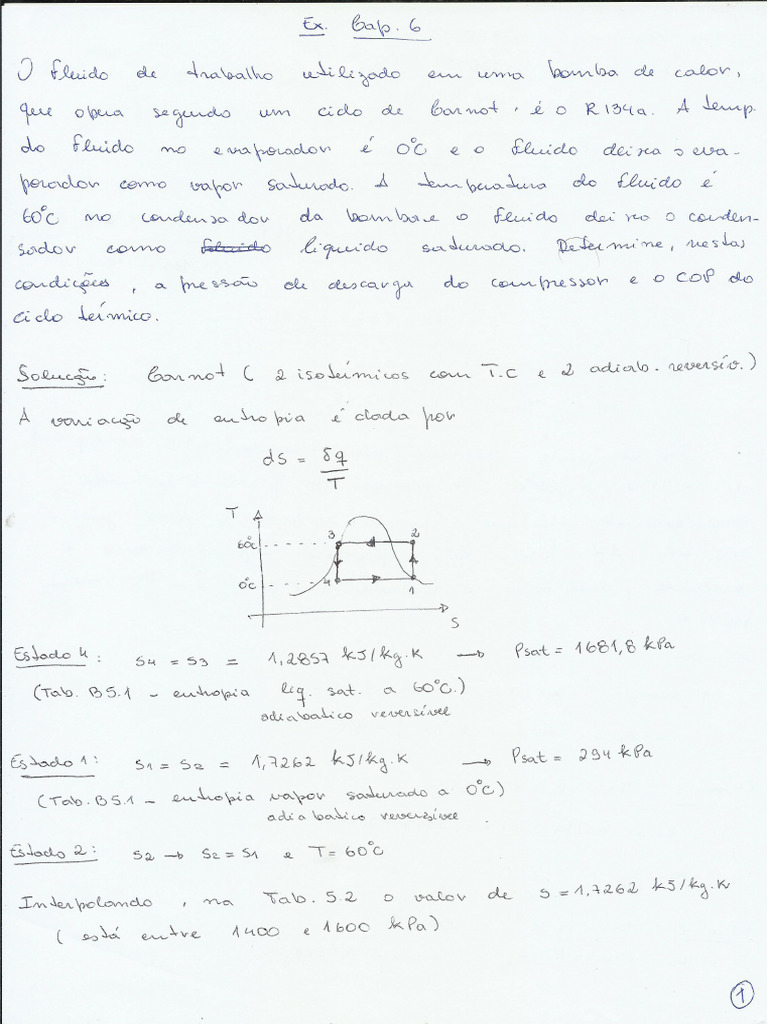 Ex. Cap. 6
O fluido de trabalho utilizado em uma bomba de calor,
que opera segundo um ciclo de Carnot, é o R134a. A temp.
do fluido no evaporador é 0°C e o fluido deixa o eva-
porador como vapor saturado. A temperatura do fluido é
60°C no condensador da bomba e o fluido deixa o conden-
sador como fluido líquido saturado. Determine, nestas
condições, a pressão de descarga do compressor e o COP do
ciclo térmico.
Solucção: Carnot ( 2 isotérmicos com T.C e 2 adiab. reversív.)
A variação de entropia é dada por
dS = δq / T
T
60°C 3 2
0°C 4 1
S
Estado 4: s4 = s3 = 1,2857 kJ/kg.K → Psat = 1681,8 kPa
(Tab. B5.1 - entropia liq. sat. a 60°C.)
adiabatico reversível
Estado 1: s1 = s2 = 1,7262 kJ/kg.K → Psat = 294 kPa
(Tab. B5.1 - entropia vapor saturado a 0°C)
adiabatico reversível
Estado 2: s2 → s2 = s1 e T = 60°C
Interpolando, na Tab. 5.2 o valor de s = 1,7262 kJ/kg.K
( está entre 1400 e 1600 kPa)
1